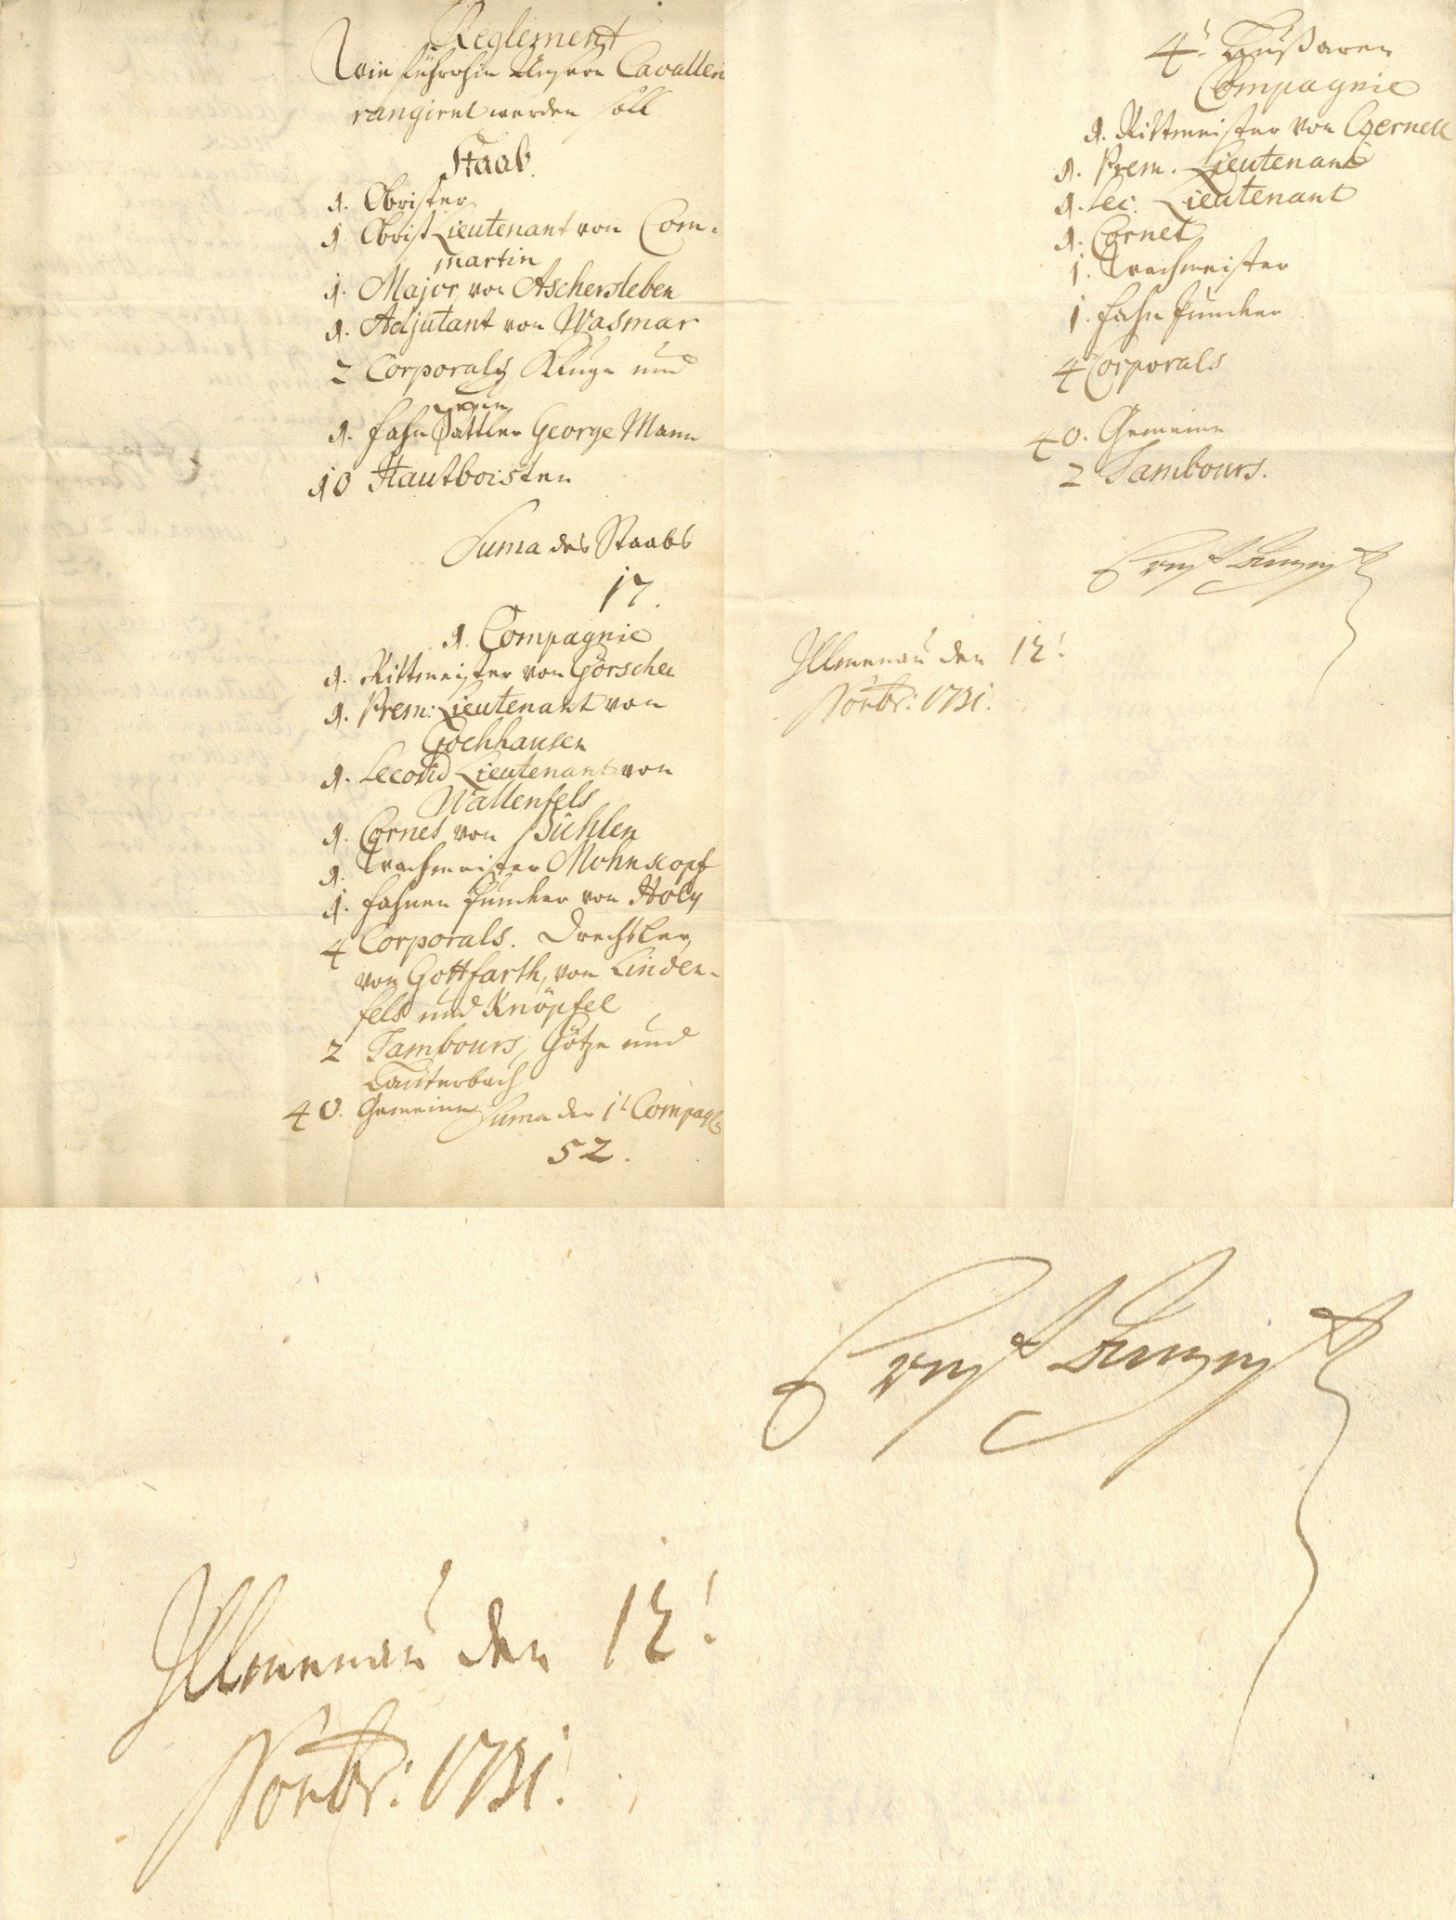 Reglement
Wie führohin Unsere Cavallerie
rangiret werden soll
Staab.
1. Obrister
1. Obrist Lieutenant von Com-
martin
1. Major von Aschersleben
1. Adjutant von Wasmar
2 Corporals Kluge und
1. Fahn Sattler George Mann
10 Hautboisten
Suma des Staabs
17.
1. Compagnie
1. Rittmeister von Görschen
1. Prem: Lieutenant von
Göchhausen
1. Second Lieutenant von
Wallenfels
1. Cornet von Bühlen
1. Wachmeister Mohnkopf
1. Fahnen Juncker von Holy
4 Corporals. Drechsler,
von Gottfarth, von Linden-
fels und Knöpfel
2 Tambours, Götze und
Lauterbach
40. Gemeine Suma der 1t Compag:
52.
4t Hußaren
Compagnie
1. Rittmeister von
1. Prem. Lieutenant
1. Sec: Lieutenant
1. Cornet
1. Wachmeister
1. Fahn Juncker
4 Corporals
40. Gemeine
2 Tambours.
Ernst August
Illmenau den 12t
Novbr: 1731.
Ernst August
Illmenau den 12t
Novbr: 1731.